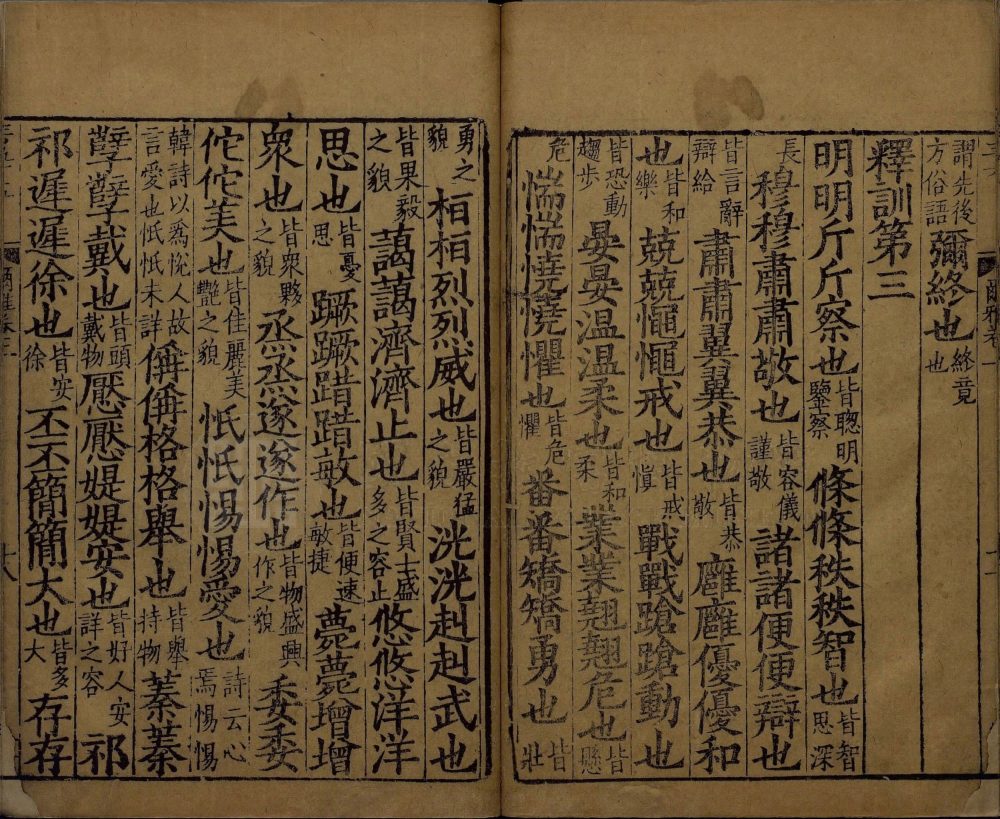 謂先後方俗語彌終也終竟也
釋訓第三
明明斤斤察也皆聰明鑒察條條秩秩智也皆智思深
長穆穆肅肅敬也皆容儀謹敬諸諸便便辯也
皆言辭辯給肅肅翼翼恭也皆恭敬廱廱優優和
也皆和樂兢兢憴憴戒也皆戒慎戰戰蹌蹌動也
皆恐動趨步晏晏温温柔也皆和柔業業翹翹危也皆懸
危惴惴憢憢懼也皆危懼番番矯矯勇也皆壯
勇之貌桓桓烈烈威也皆嚴猛之貌洸洸赳赳武也
皆果毅之貌藹藹濟濟止也皆賢士盛多之容止悠悠洋洋
思也皆憂思蹶蹶踖踖敏也皆便速敏捷薨薨增增
衆也皆衆夥之貌烝烝遂遂作也皆物盛興作之貌委委
佗佗美也皆佳麗美豔之貌忯忯惕惕愛也詩云心焉惕惕
韓詩以爲悅人故言愛也忯未詳偁偁格格舉也皆舉持物蓁蓁
孼孼戴也皆頭戴物懕懕媞媞安也皆好人安詳之容祁
祁遲遲徐也皆安徐丕丕簡簡大也皆多大存存